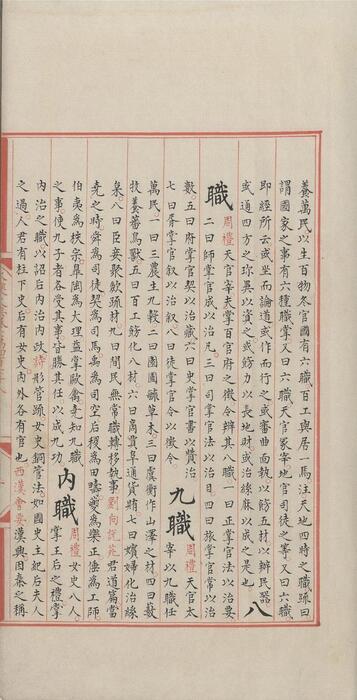 養萬民以生百物冬官國有六職百工與居一焉注天地四時之職疏曰
謂國家之事有六種職掌又曰六職天官冢宰地官司徒之等又曰六職
即經所云或坐而論道或作而行之或審曲面執以飭五材以辨民器
或通四方之珍異以資之或飭力以長地財或治絲麻以成之是也 八
職 周禮天官宰夫掌百官府之徵令辨其八職一曰正掌官法以治要
二曰師掌官成以治凡三曰司掌官法以治目四曰旅掌官常以治
數五曰府掌官契以治藏六曰史掌官書以贊治
七曰胥掌官敘以治敘八曰徒掌官令以徵令 九職 周禮天官太宰以九職任
萬民一曰三農生九穀二曰園圃毓草木三曰虞衡作山澤之材四曰藪
牧養蕃鳥獸五曰百工飭化八材六曰商賈阜通貨賄七曰嬪婦化治絲
枲八曰臣妾聚斂疏材九曰閒民無常職轉移執事劉向說苑君道篇當
堯之時舜為司徒契為司馬禹為司空后稷為田疇夔為樂正倕為工師
伯夷為秩宗臯陶為大理益掌敺禽堯知九職
之事使九子者各受其事皆勝其任以成九功 內職 周禮女史八人掌王后之禮掌
內治之職以詔后治內政疏形官疏女史彤管法如國史主紀后夫人
之過人君有柱下史后有女史內外各有官也西漢會要漢興因秦之稱